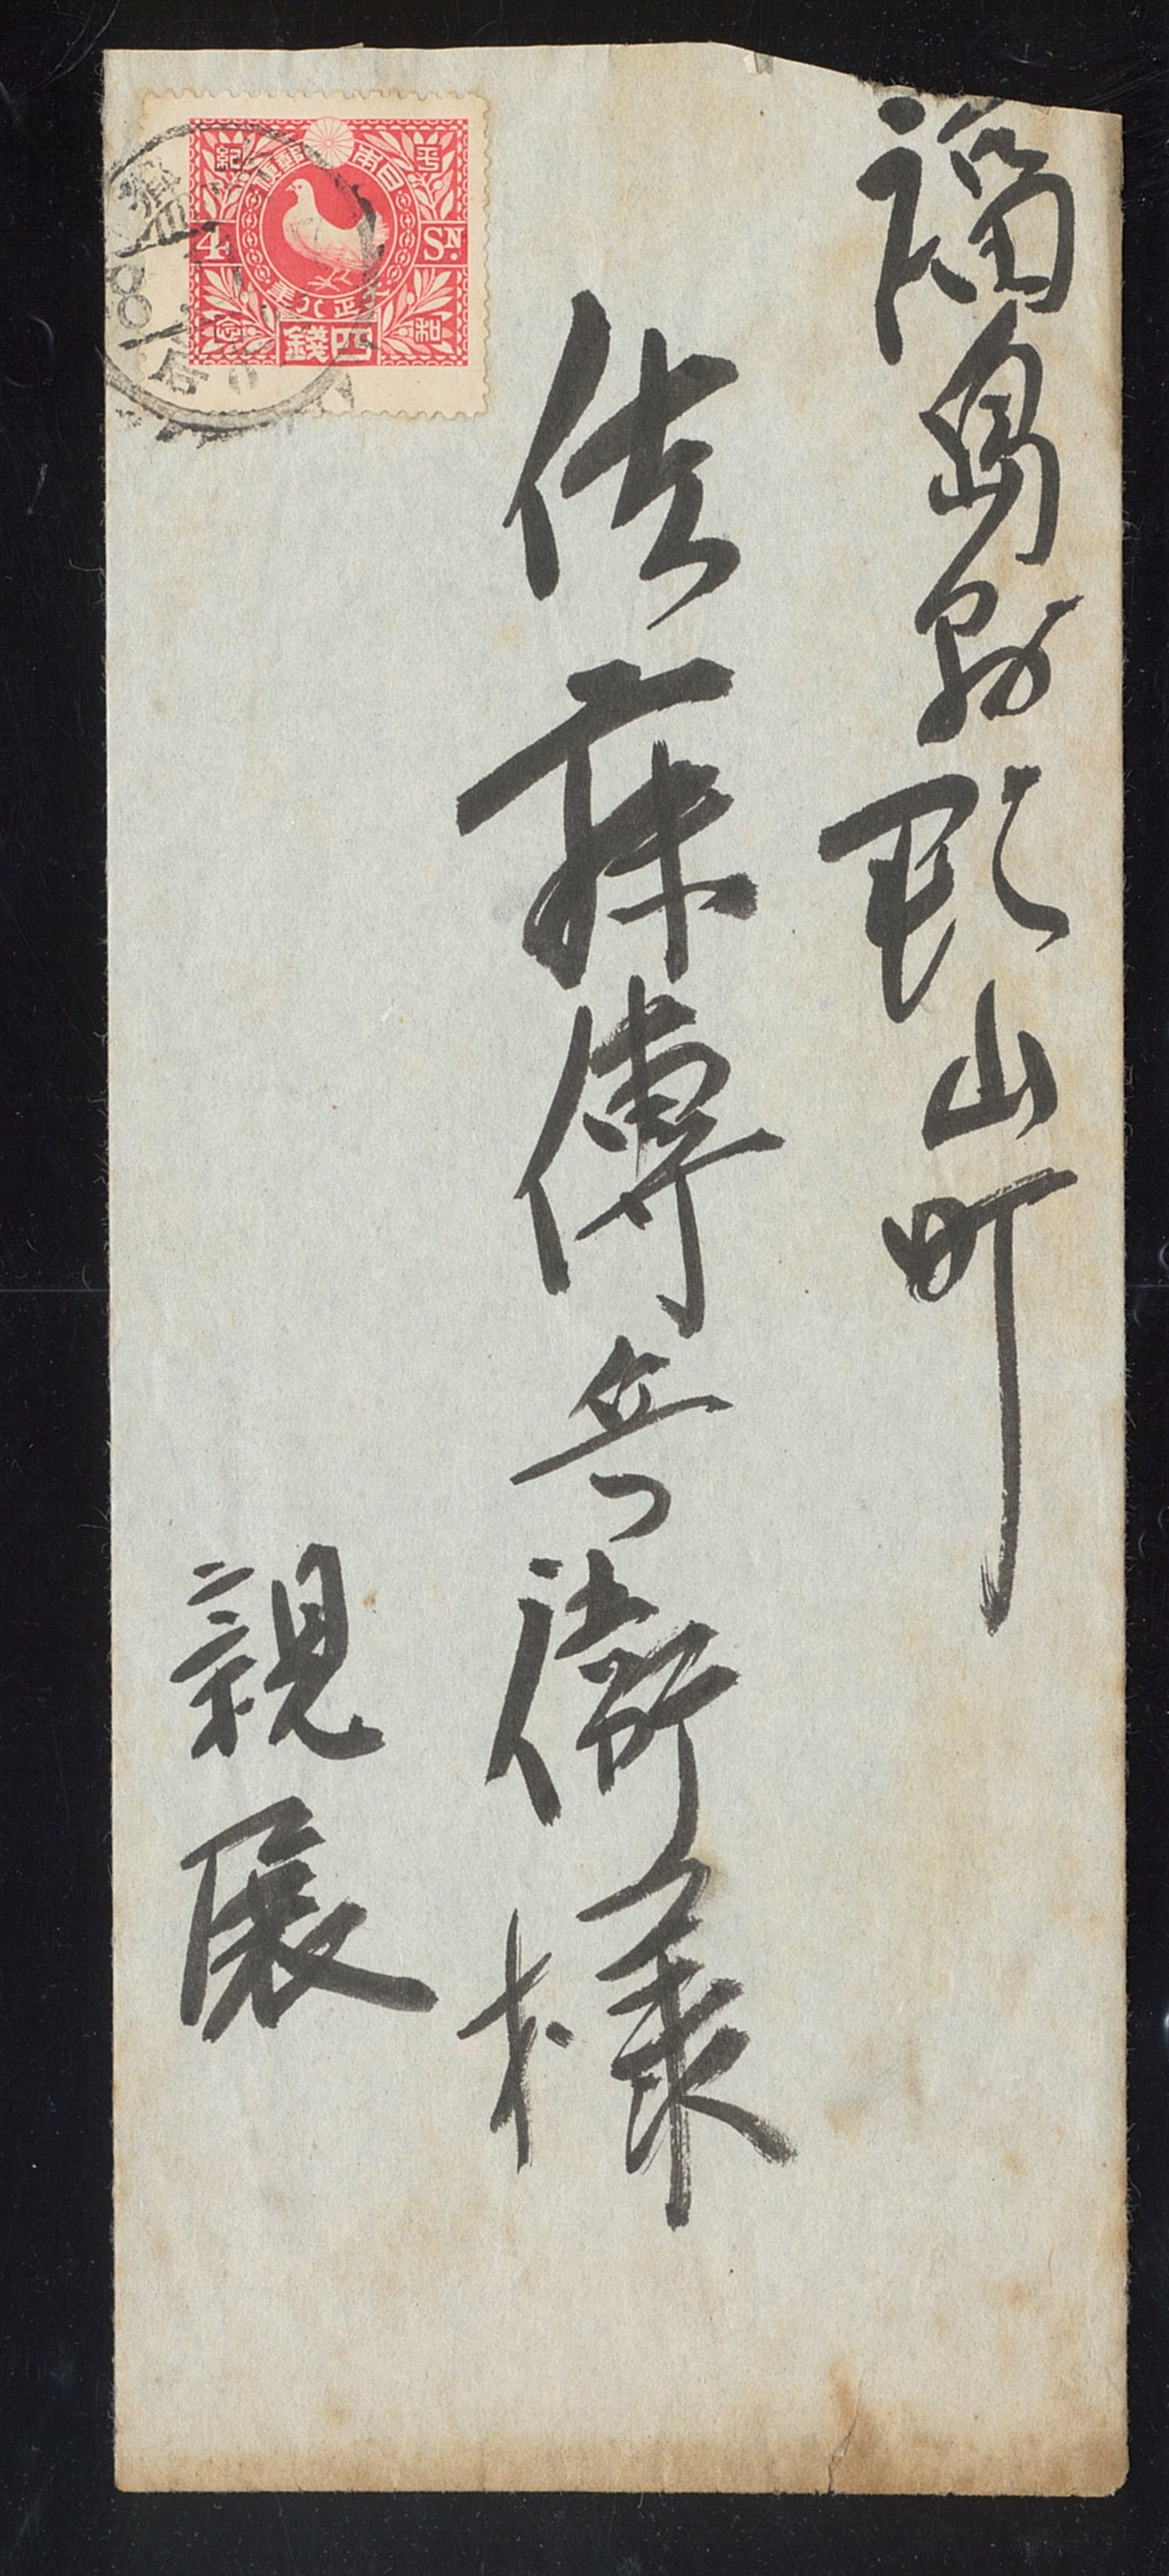 福島縣郡山町
佐藤傳兵衛様
親展
日本郵便
平和紀念
4 Sn.
大正八年
四錢